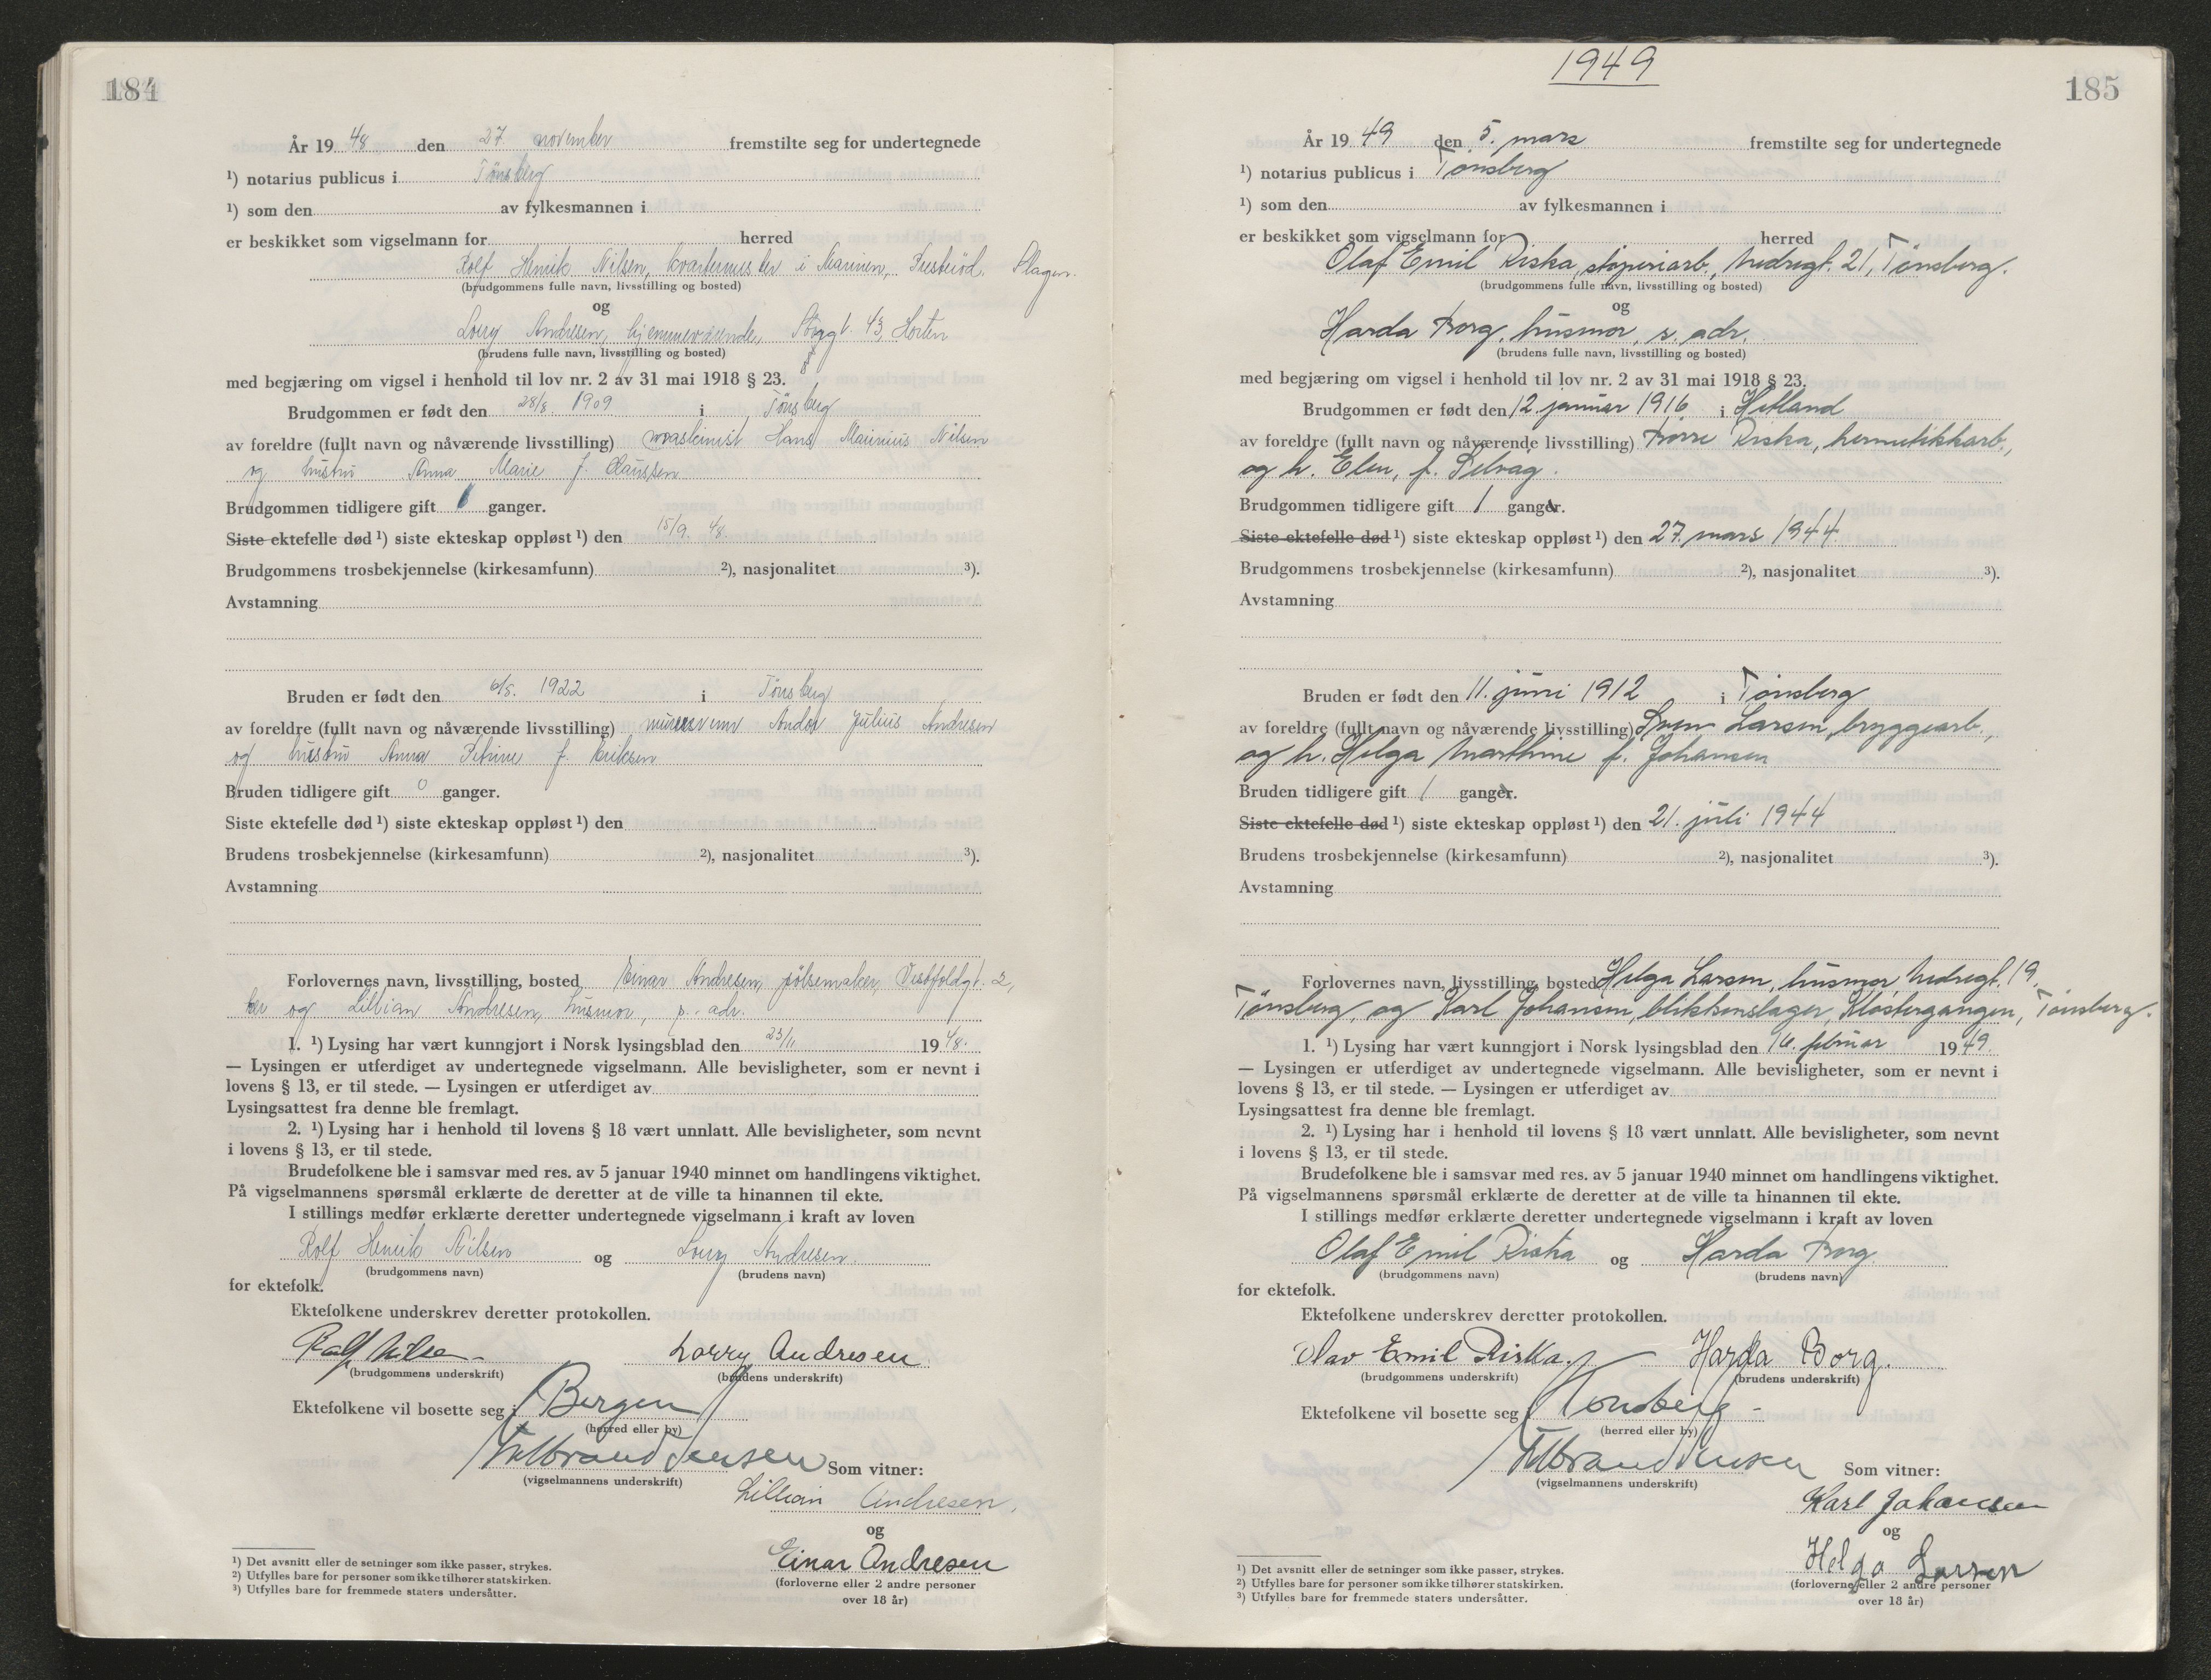 184
År 19 48 den 27 november fremstilte seg for undertegnede
¹) notarius publicus i Tønsberg
¹) som den av fylkesmannen i
er beskikket som vigselmann for herred
Rolf Henrik Nilsen, kvartermester i Marinen, Slagen.
(brudgommens fulle navn, livsstilling og bosted)
og
Lorry Andresen, hjemmeværende, 43, Horten
(brudens fulle navn, livsstilling og bosted)
med begjæring om vigsel i henhold til lov nr. 2 av 31 mai 1918 § 23.
Brudgommen er født den 28/8 1909 i Tönsberg
av foreldre (fullt navn og nåværende livsstilling) maskinist Hans Maurinius Nilsen
og hustru Anna Marie f. Claussen
Brudgommen tidligere gift 1 ganger.
Siste ektefelle død ¹) siste ekteskap oppløst ¹) den 15/9. 48.
Brudgommens trosbekjennelse (kirkesamfunn) ²), nasjonalitet ³).
Avstamning
Bruden er født den 6/5. 1922 i Tönsberg
av foreldre (fullt navn og nåværende livsstilling) murersvenn Andor Julius Andresen
og hustru Anna Petrine f. Eriksen
Bruden tidligere gift 0 ganger.
Siste ektefelle død ¹) siste ekteskap oppløst ¹) den
Brudens trosbekjennelse (kirkesamfunn) ²), nasjonalitet ³).
Avstamning
Forlovernes navn, livsstilling, bosted Einar Andresen, pölsemaker, Vestfoldgt. 2,
her og Lillian Andresen, husmor, s. adr.
1. ¹) Lysing har vært kunngjort i Norsk lysingsblad den 23/11 19 48.
— Lysingen er utferdiget av undertegnede vigselmann. Alle bevisligheter, som er nevnt i
lovens § 13, er til stede. — Lysingen er utferdiget av
Lysingsattest fra denne ble fremlagt.
2. ¹) Lysing har i henhold til lovens § 18 vært unnlatt. Alle bevisligheter, som nevnt
i lovens § 13, er til stede.
Brudefolkene ble i samsvar med res. av 5 januar 1940 minnet om handlingens viktighet.
På vigselmannens spørsmål erklærte de deretter at de ville ta hinannen til ekte.
I stillings medfør erklærte deretter undertegnede vigselmann i kraft av loven
Rolf Henrik Nilsen og Lorry Andresen.
(brudgommens navn) (brudens navn)
for ektefolk.
Ektefolkene underskrev deretter protokollen.
Rolf Nilsen Lorry Andresen
(brudgommens underskrift) (brudens underskrift)
Ektefolkene vil bosette seg i Bergen
(herred eller by)
Som vitner:
(vigselmannens underskrift)
Lillian Andresen,
og
Einar Andresen
(forloverne eller 2 andre personer
over 18 år)
¹) Det avsnitt eller de setninger som ikke passer, strykes.
²) Utfylles bare for personer som ikke tilhører statskirken.
³) Utfylles bare for fremmede staters undersåtter.
1949
185
År 19 49 den 5. mars fremstilte seg for undertegnede
¹) notarius publicus i Tønsberg
¹) som den av fylkesmannen i
er beskikket som vigselmann for herred
Olaf Emil Riska, støperiarb., Nedregt. 21, Tønsberg.
(brudgommens fulle navn, livsstilling og bosted)
og
Harda Borg, husmor, s. adr.
(brudens fulle navn, livsstilling og bosted)
med begjæring om vigsel i henhold til lov nr. 2 av 31 mai 1918 § 23.
Brudgommen er født den 12. januar 1916 i Hetland
av foreldre (fullt navn og nåværende livsstilling) Riska, hermetikkarb.,
og h. Elen, f. Selvåg.
Brudgommen tidligere gift 1 ganger.
Siste ektefelle død ¹) siste ekteskap oppløst ¹) den 27. mars 1944.
Brudgommens trosbekjennelse (kirkesamfunn) ²), nasjonalitet ³).
Avstamning
Bruden er født den 11. juni 1912 i Tønsberg
av foreldre (fullt navn og nåværende livsstilling) Sven Larsen, bryggearb.,
og h. Helga Marthine f. Johansen
Bruden tidligere gift 1 ganger.
Siste ektefelle død ¹) siste ekteskap oppløst ¹) den 21. juli 1944
Brudens trosbekjennelse (kirkesamfunn) ²), nasjonalitet ³).
Avstamning
Forlovernes navn, livsstilling, bosted Helga Larsen, husmor, Nedregt. 19,
Tønsberg, og Karl Johansen, blikkenslager, Klostergangen, Tønsberg.
1. ¹) Lysing har vært kunngjort i Norsk lysingsblad den 16. februar 19 49.
— Lysingen er utferdiget av undertegnede vigselmann. Alle bevisligheter, som er nevnt i
lovens § 13, er til stede. — Lysingen er utferdiget av
Lysingsattest fra denne ble fremlagt.
2. ¹) Lysing har i henhold til lovens § 18 vært unnlatt. Alle bevisligheter, som nevnt
i lovens § 13, er til stede.
Brudefolkene ble i samsvar med res. av 5 januar 1940 minnet om handlingens viktighet.
På vigselmannens spørsmål erklærte de deretter at de ville ta hinannen til ekte.
I stillings medfør erklærte deretter undertegnede vigselmann i kraft av loven
Olaf Emil Riska og Harda Borg
(brudgommens navn) (brudens navn)
for ektefolk.
Ektefolkene underskrev deretter protokollen.
Olav Emil Riska. Harda Borg.
(brudgommens underskrift) (brudens underskrift)
Ektefolkene vil bosette seg i Tønsberg
(herred eller by)
Som vitner:
(vigselmannens underskrift)
Karl Johansen
og
Helga Larsen
(forloverne eller 2 andre personer
over 18 år)
¹) Det avsnitt eller de setninger som ikke passer, strykes.
²) Utfylles bare for personer som ikke tilhører statskirken.
³) Utfylles bare for fremmede staters undersåtter.